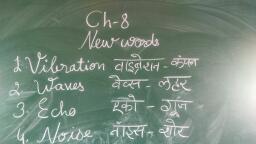 Ch-8
New words
1. Vibration वाइब्रेशन - कंपन
2. Waves वेव्स - लहर
3. Echo इको - गूंज
4. Noise नॉइस - शोर